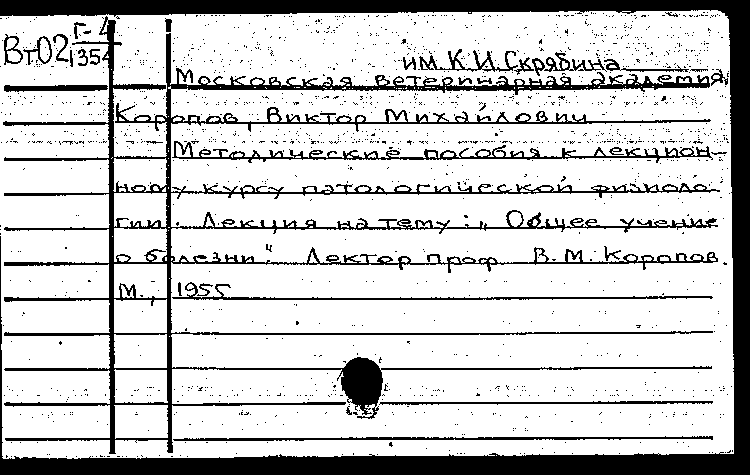 Вт02 Г-4
1354
им. К.И. Скрябина
Московская ветеринарная академия
Коропов, Виктор Михайлович
Методические пособия к лекцион-
ному курсу патологической физиоло-
гии. Лекция на тему: „Общее учение
о болезни". Лектор проф. В.М. Коропов.
М., 1955